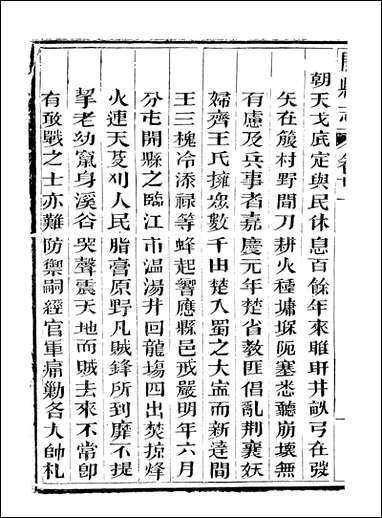 開縣志 卷廿一
朝天戈底定與民休息百餘年來睢畊井畝弓在弢
矢在箙村野間刀耕火種墉堢阨塞悉聽崩壞無
有慮及兵事者嘉慶元年楚省教匪倡亂荆襄妖
婦齊王氏擁衆數千由楚入蜀之大寍而新逹間
王三槐冷添祿等蜂起響應縣邑戒嚴明年六月
分屯開縣之臨江市温湯井回龍塲四出焚掠烽
火連天芟刈人民脂膏原野凡賊鋒所到靡不提
挈老幼竄身溪谷哭聲震天地而賊去來不常卽
有敢戰之士亦難防禦嗣經官軍痛勦各大帥札